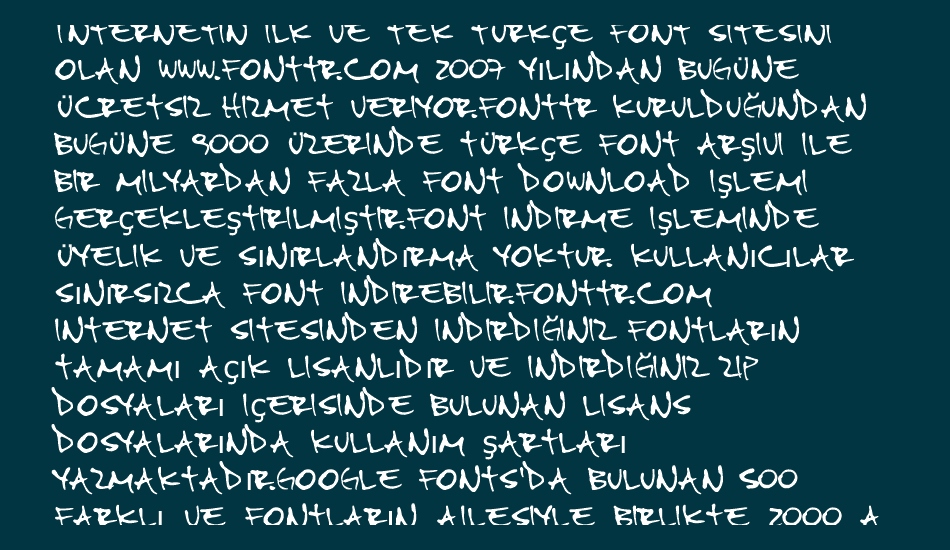 INTERNETIN ILK VE TEK TÜRKÇE FONT SITESINI
OLAN WWW.FONTTR.COM 2007 YILINDAN BUGÜNE
ÜCRETSIZ HIZMET VERIYOR.FONTTR KURULDUĞUNDAN
BUGÜNE 9000 ÜZERINDE TÜRKÇE FONT ARŞIVI ILE
BIR MILYARDAN FAZLA FONT DOWNLOAD IŞLEMI
GERÇEKLEŞTIRILMIŞTIR.FONT INDIRME IŞLEMINDE
ÜYELIK VE SINIRLANDIRMA YOKTUR. KULLANICILAR
SINIRSIZCA FONT INDIREBILIR.FONTTR.COM
INTERNET SITESINDEN INDIRDIĞINIZ FONTLARIN
TAMAMI AÇIK LISANLIDIR VE INDIRDIĞINIZ ZIP
DOSYALARI IÇERISINDE BULUNAN LISANS
DOSYALARINDA KULLANIM ŞARTLARI
YAZMAKTADIR.GOOGLE FONTS'DA BULUNAN 500
FARKLI VE FONTLARIN AILESIYLE BIRLIKTE 2000 A